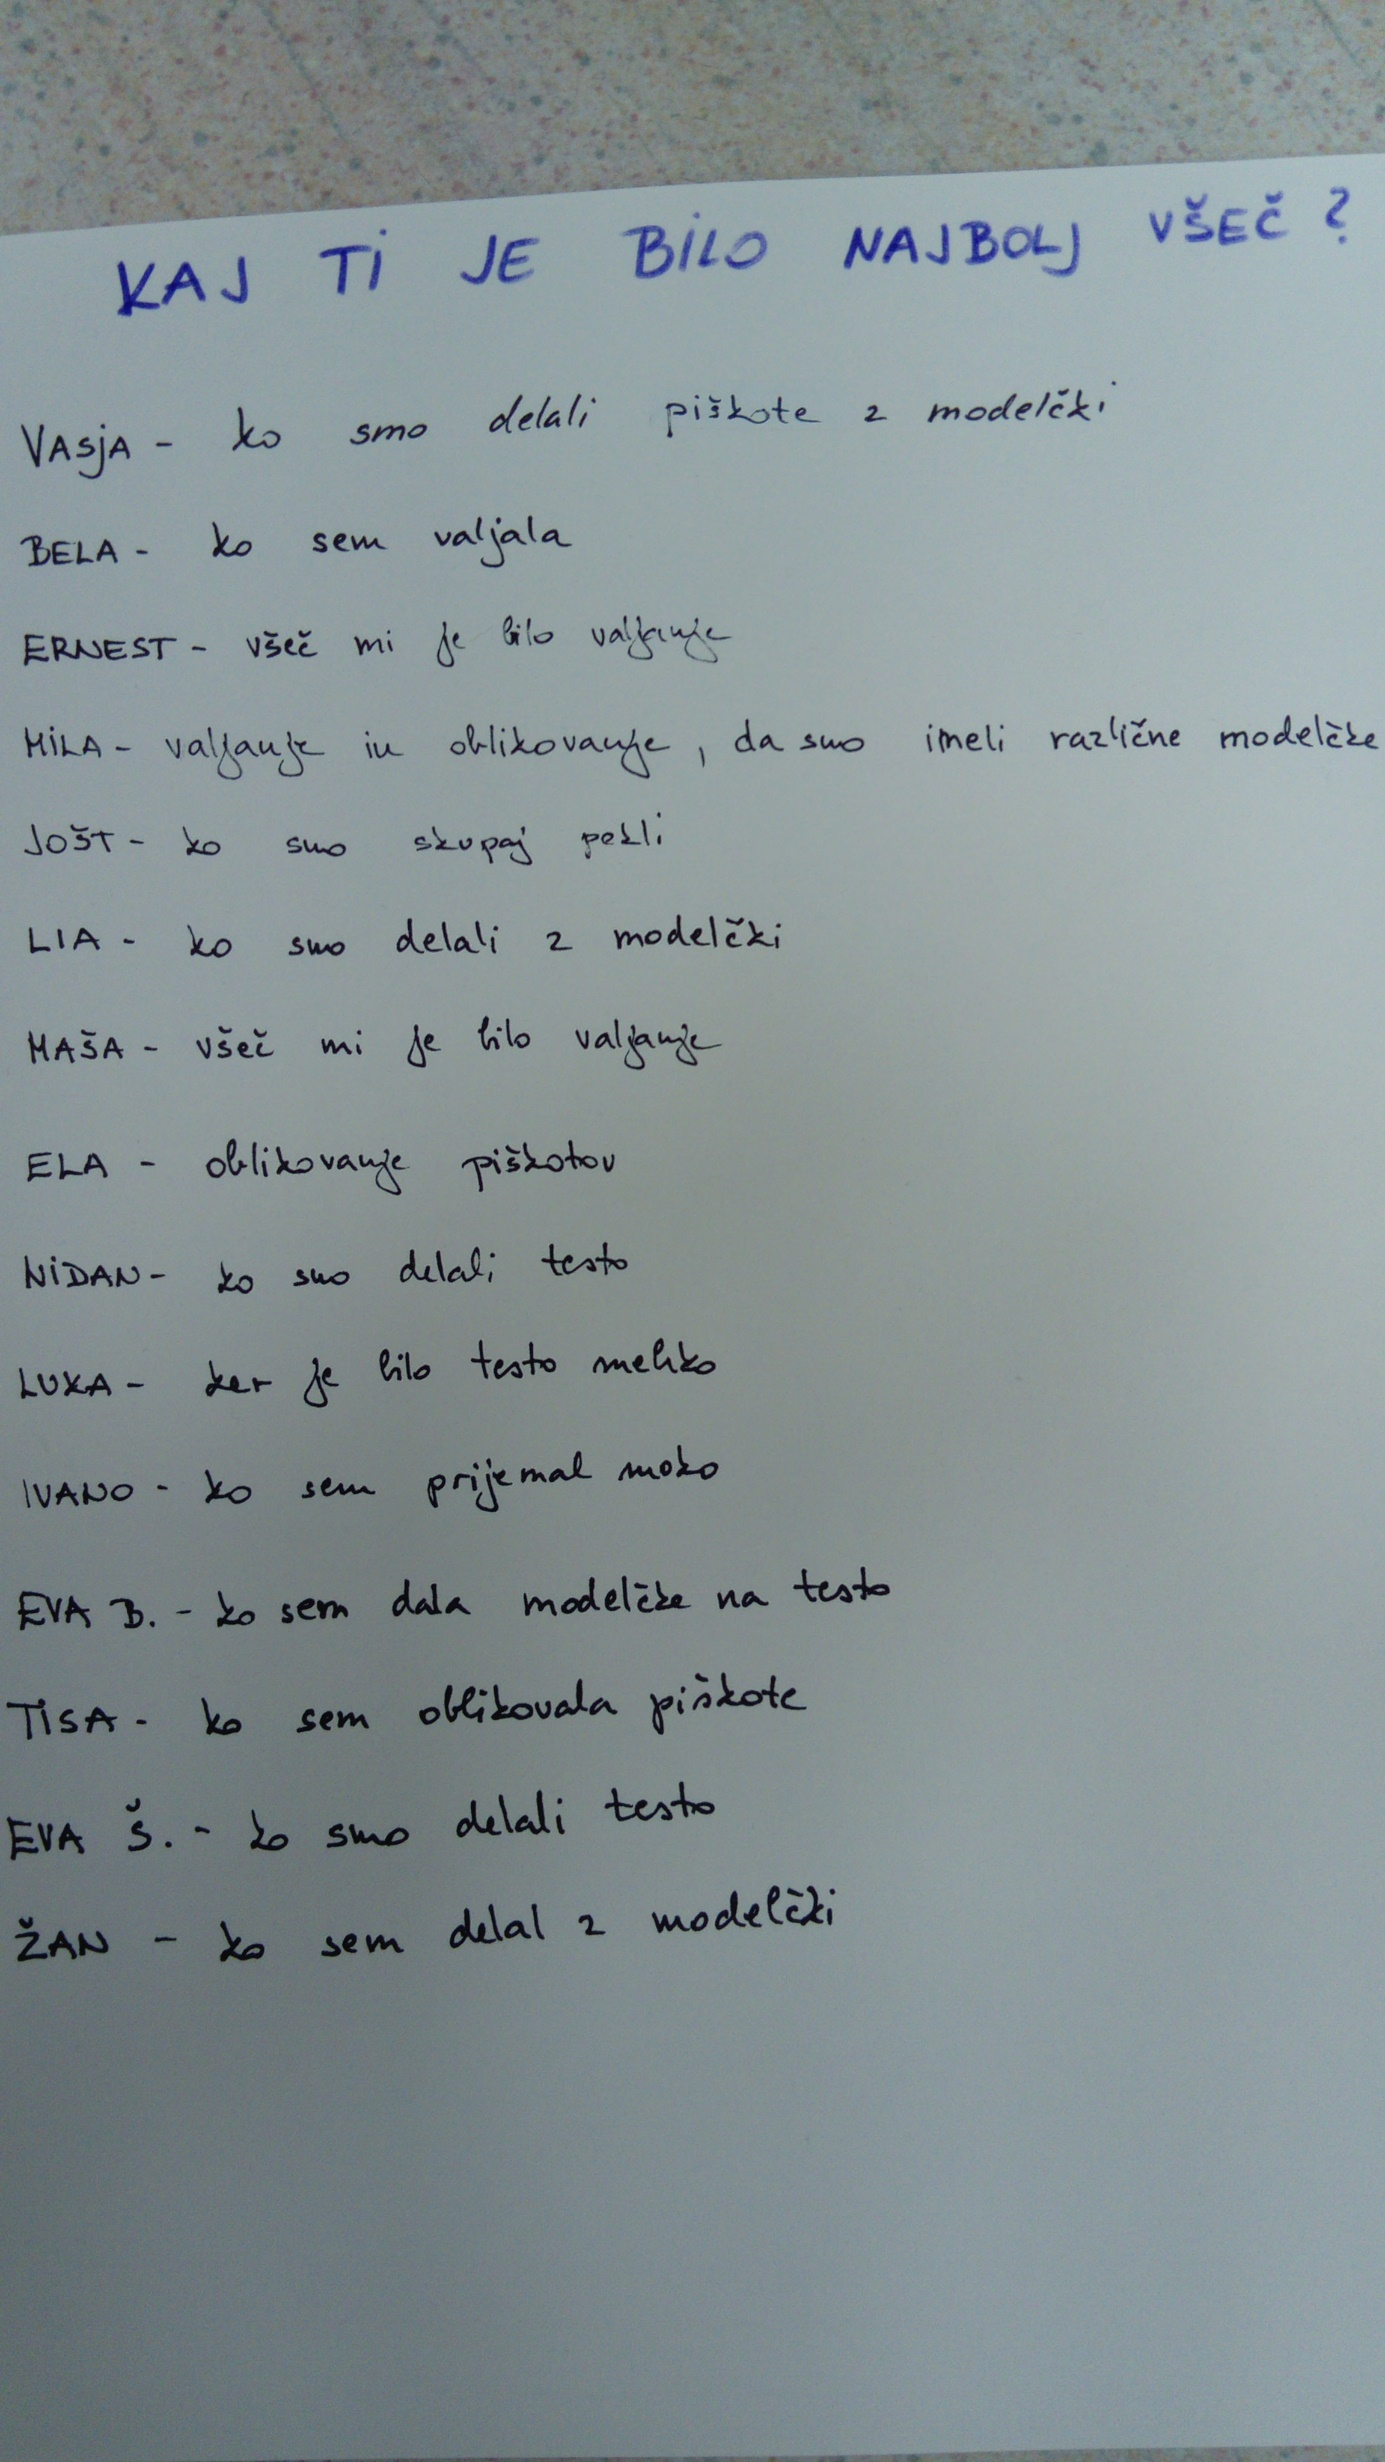 KAJ TI JE BILO NAJBOLJ VŠEČ?
VASJA - ko smo delali piškote z modelčki
BELA - ko sem valjala
ERNEST - všeč mi je bilo valjanje
MILA - valjanje in oblikovanje, da smo imeli različne modelčke
JOŠT - ko smo skupaj pekli
LIA - ko smo delali z modelčki
MAŠA - všeč mi je bilo valjanje
ELA - oblikovanje piškotov
NIDAN - ko smo delali testo
LUKA - ker je bilo testo mehko
IVANO - ko sem prijemal moko
EVA B. - ko sem dala modelčke na testo
TISA - ko sem oblikovala piškote
EVA Š. - ko smo delali testo
ŽAN - ko sem delal z modelčki